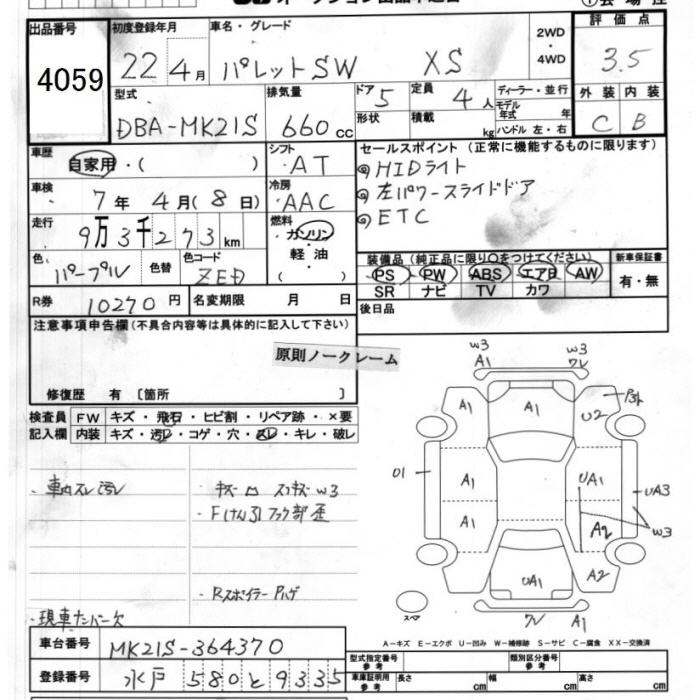 出品番号 4059
初度登録年月 22年4月
車名・グレード パレットSW XS
2WD・4WD
評価点 3.5
型式 DBA-MK21S
排気量 660cc
ドア 5
形状
定員 4人
積載 kg
ディーラー・並行
モデル年式 年
ハンドル 左・右
外装 C
内装 B
車歴 自家用・( )
シフト AT
セールスポイント (正常に機能するものに限ります)
HIDライト
左パワースライドドア
ETC
車検 7年4月(8日)
冷房 AAC
走行 9万3千273km
燃料 ガソリン 軽油 ( )
色 パープル 色替
色コード ZED
装備品 (純正品に限り○をつけてください)
PS PW ABS エアB AW
SR ナビ TV カワ
新車保証書 有・無
R券 10270円
名変期限 月 日
後日品
注意事項申告欄(不具合内容等は具体的に記入して下さい)
原則ノークレーム
修復歴 有 [箇所 ]
検査員記入欄
FW キズ・飛石・ヒビ割・リペア跡・×要
内装 キズ・汚レ・コゲ・穴・スレ・キレ・破レ
・車内スレ汚レ
・Rスポイラー Pハゲ
・現車ナンバー欠
W3 A1
W3 ワレ
A1 A1 U2
01 A1 UA1 UA3
A1 A2 W3
UA1 A2
スペア
ワレ A1
A-キズ E-エクボ U-凹み W-補修跡 S-サビ C-腐食 XX-交換済
車台番号 MK21S-364370
登録番号 水戸 580 と 9335
型式指定番号 参考
類別区分番号 参考
車庫証明用 参考 長さ cm 幅 cm 高さ cm